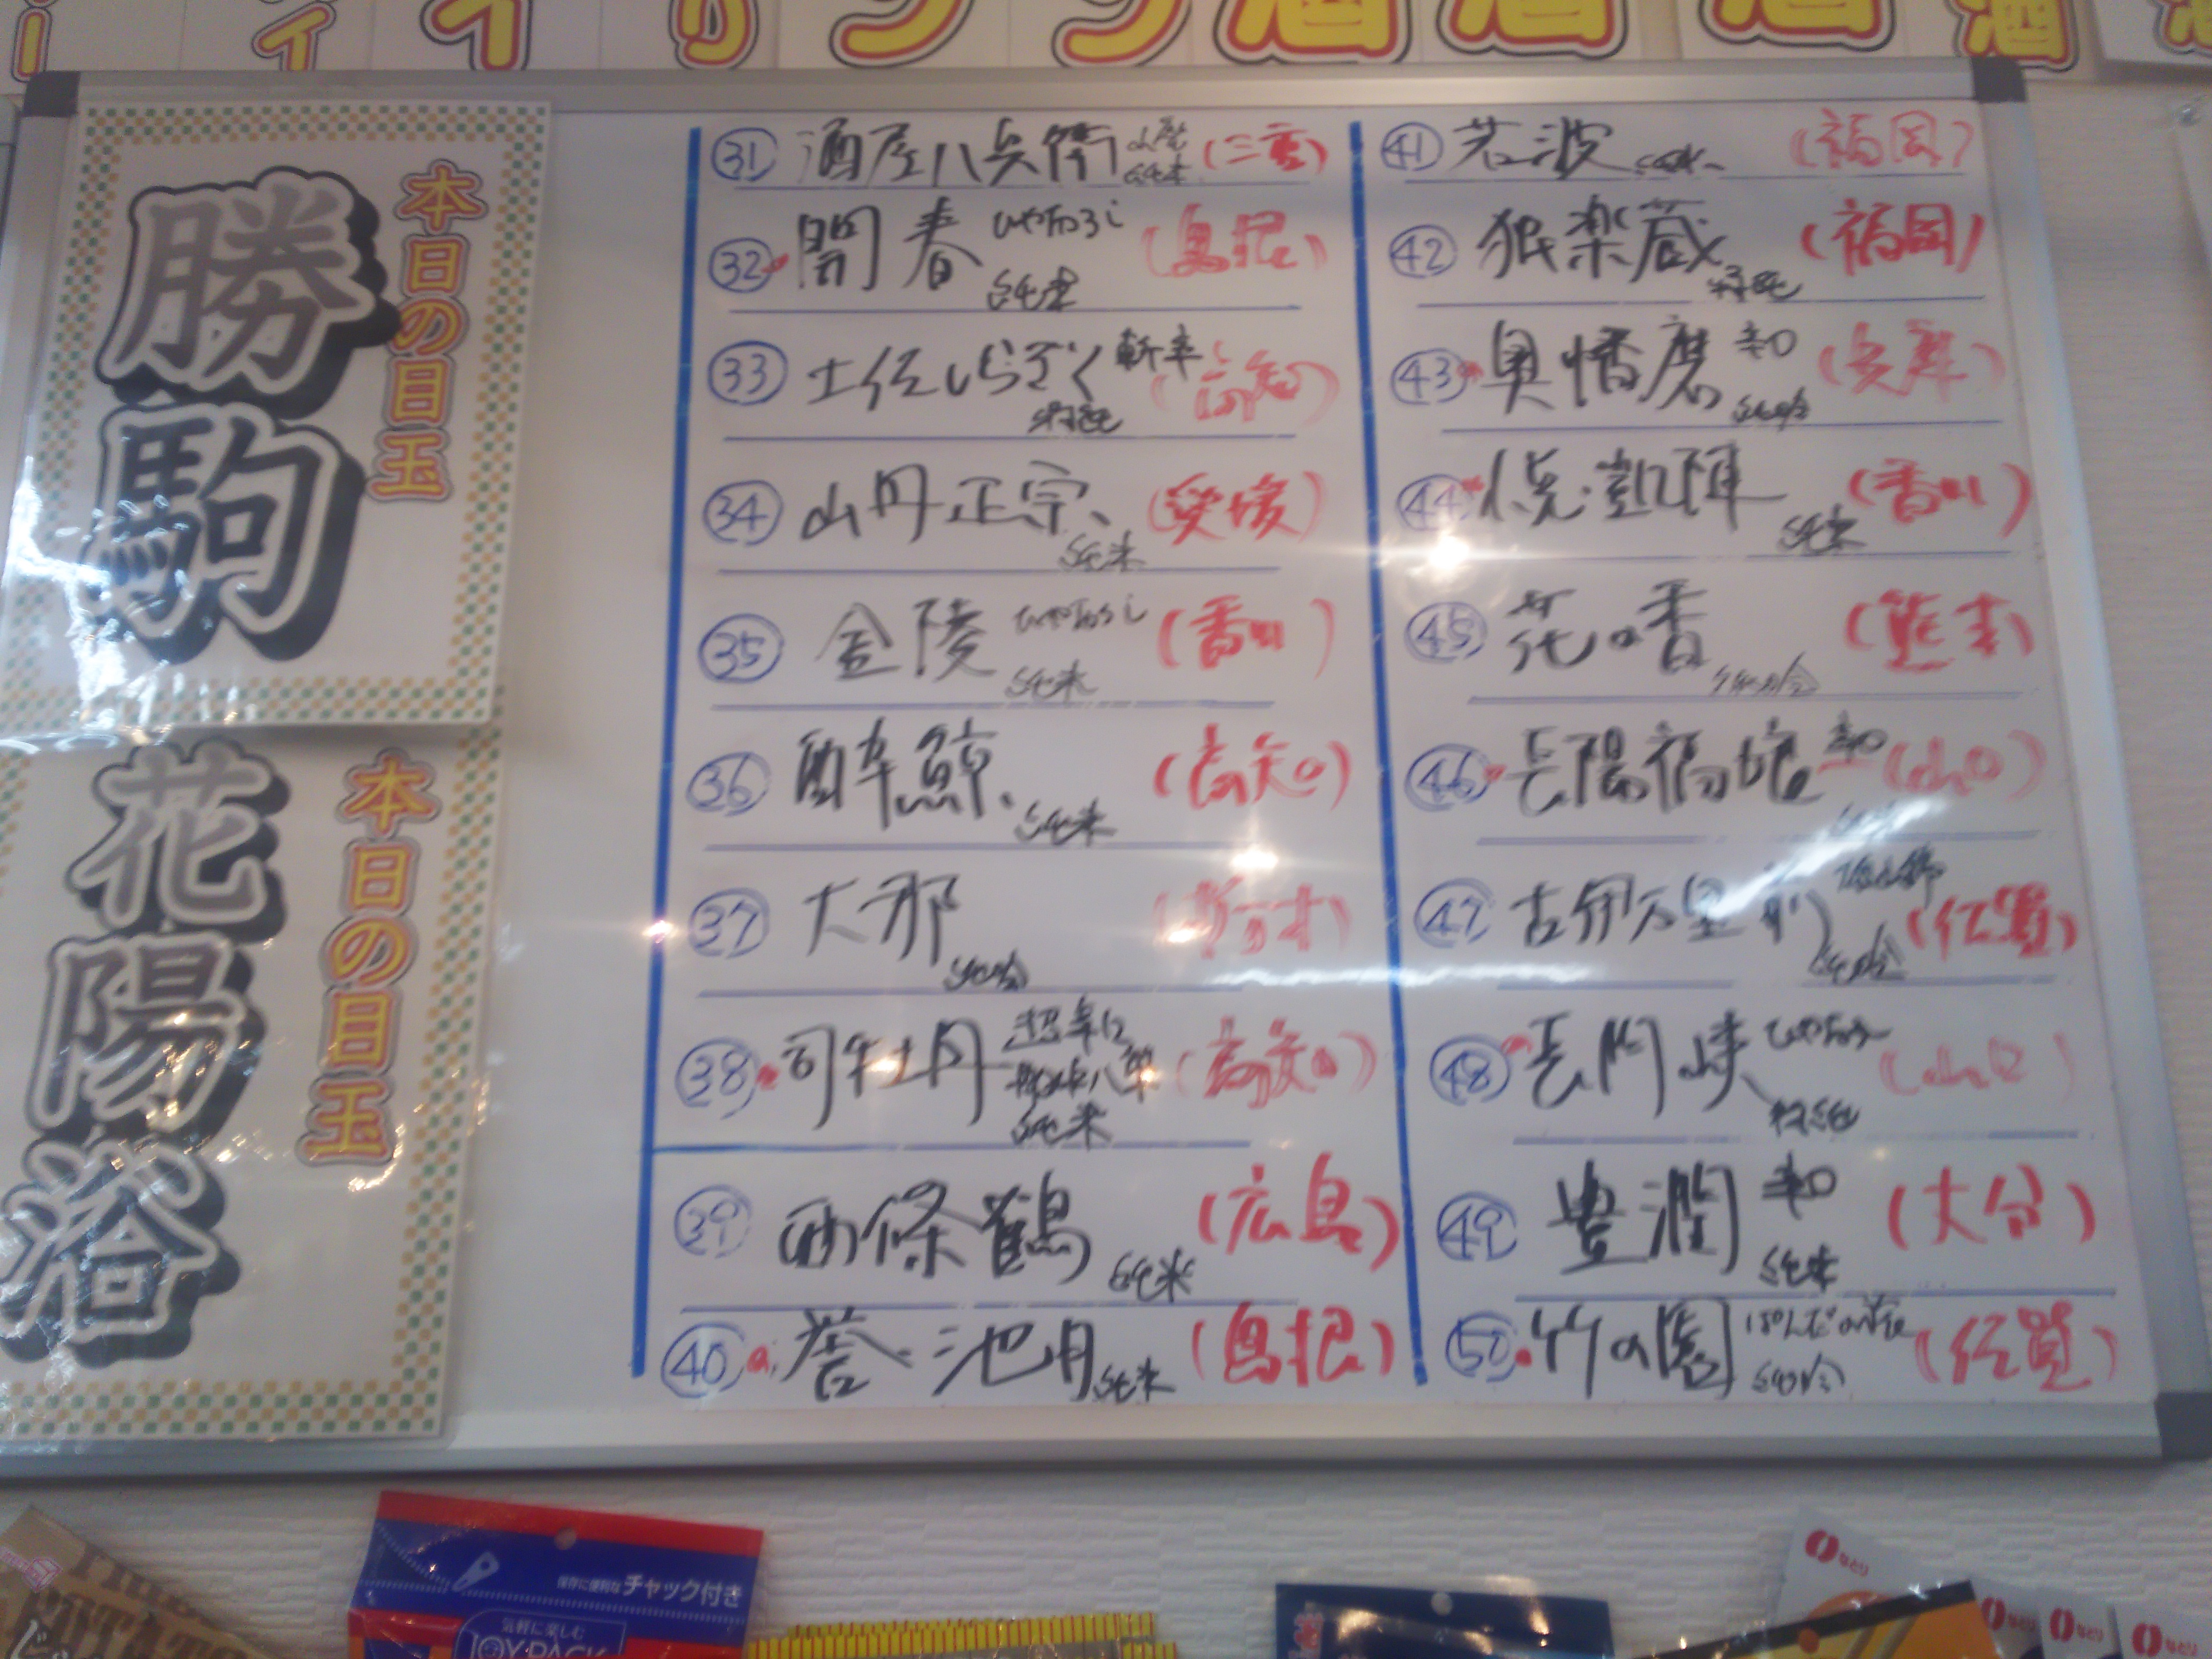 本日の目玉
勝駒
本日の目玉
花陽浴
㉛ 酒屋八兵衛 山廃 純米 (三重)
㉜ 開春 ひやおろし 純米 (島根)
㉝ 土佐しらぎく 斬辛 特純 (高知)
㉞ 山丹正宗 純米 (愛媛)
㉟ 金陵 ひやおろし 純米 (香川)
㊱ 酔鯨 純米 (高知)
㊲ 大那 純吟
㊳ 司牡丹 超辛口 船中八策 純米 (高知)
㊴ 西條鶴 純米 (広島)
㊵ 誉池月 純米 (島根)
㊶ 若波 (福岡)
㊷ 独楽蔵 特純 (福岡)
㊸ 奥播磨 辛口 純吟 (兵庫)
㊹ 悦凱陣 純米 (香川)
㊺ 花の香 純吟 (熊本)
㊻ 長陽福娘 辛口 (山口)
㊼ 古伊万里 前 純吟 (佐賀)
㊽ 長門峡 ひやおろし 特純 (山口)
㊾ 豊潤 辛口 純米 (大分)
㊿ 竹の園 純吟 (佐賀)
保存に便利なチャック付き
気軽に楽しむ
JOY PACK
なとり
なとり
なとり
なとり